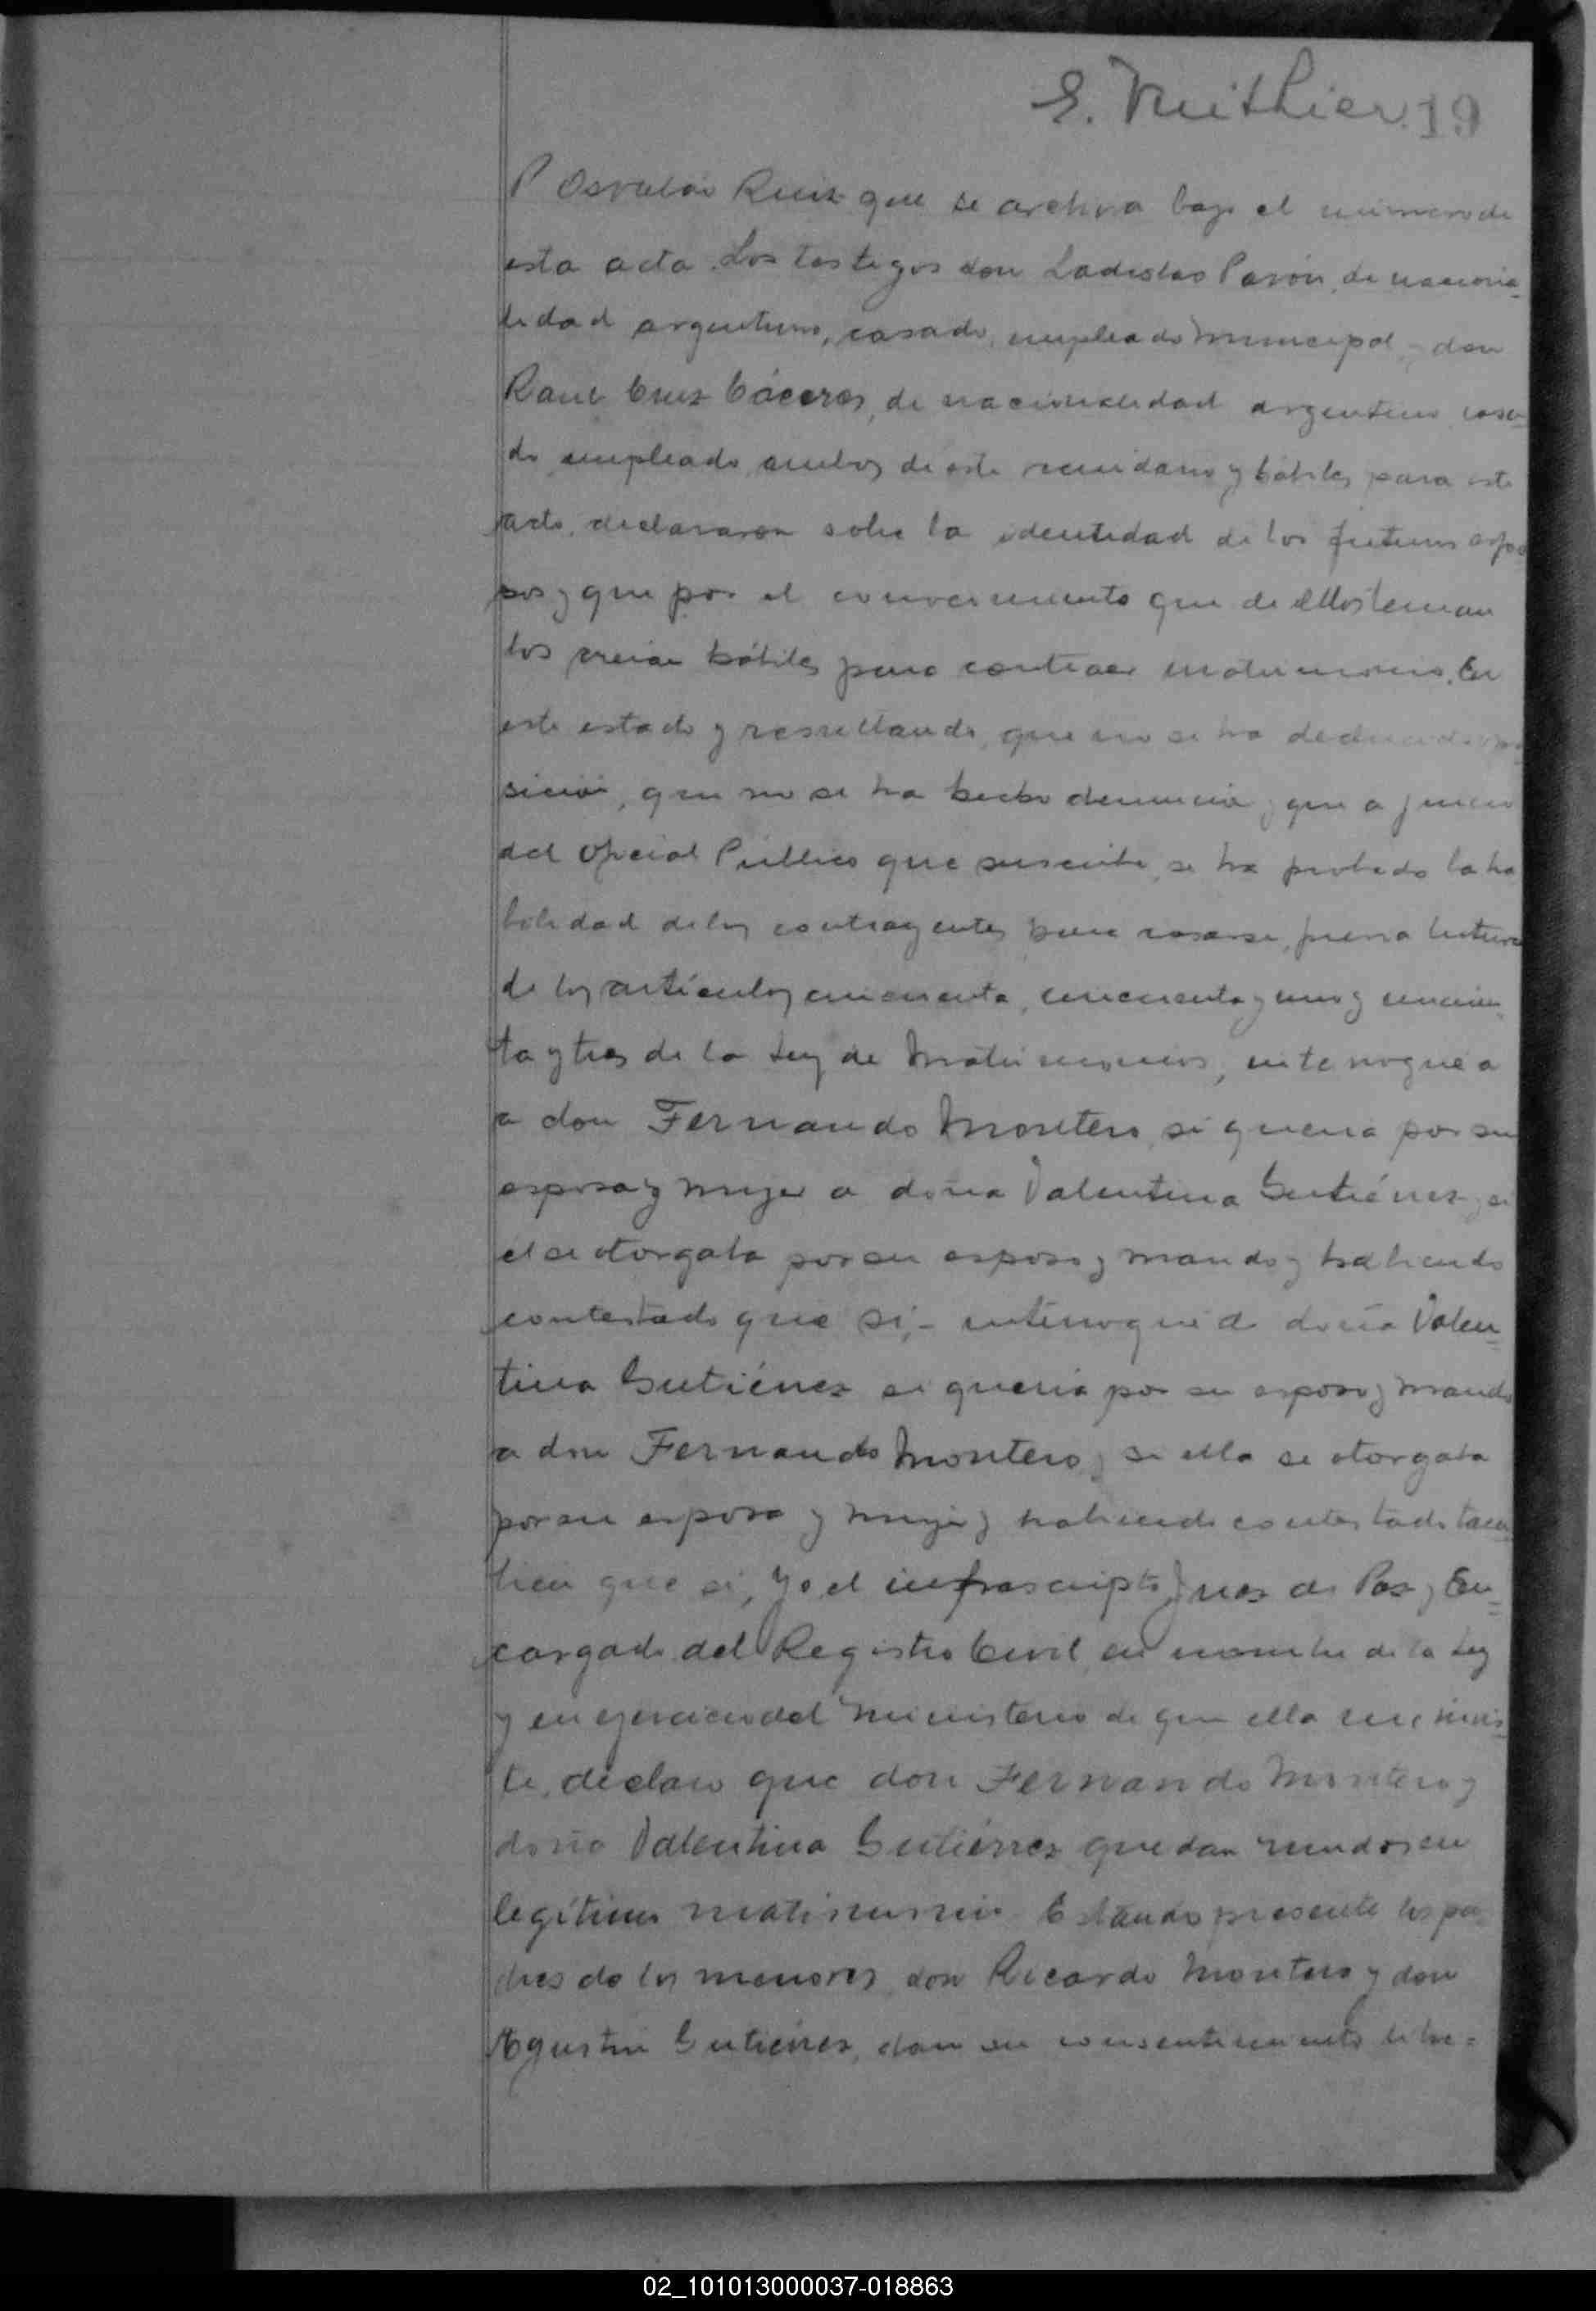 E. Mithier. 19
P Osvaldo Ruiz que se archiva bajo el número de
esta acta. Los testigos don Ladislao Pavón, de naciona-
lidad argentino, casado, empleado Municipal y don
Raul Cruz Cáceres, de nacionalidad argentino casa-
do empleado, ambos de este vecindario y hábiles para este
acto, declararon sobre la identidad de los futuros espo
sos y que por el conocimiento que de ellos tenian
los creian hábiles para contraer matrimonio. En
este estado y resultando, que no se ha deducido opo
sición, que no se ha hecho denuncia y que a juicio
del Oficial Público que suscribe, se ha probado la ha
bilidad de los contrayentes para casarse, previa lectura
de los artículos cincuenta, cincuenta y uno y cincuen-
ta y tres de la Ley de Matrimonios, interrogué a
a don Fernando Montero, si queria por su
esposa y mujer a doña Valentina Gutiérrez y si
él se otorgaba por su esposo y marido y habiendo
contestado que si,- interrogué a doña Valen-
tina Gutiérrez si queria por su esposo y marido
a don Fernando Montero y si ella se otorgaba
por su esposa y mujer y habiendo contestado tam
bien que si, Yo el infrascripto Juez de Paz y En-
cargado del Registro Civil, en nombre de la Ley
y en ejercicio del Ministerio de que ella me invis-
te, declaro que don Fernando Montero y
doña Valentina Gutiérrez quedan unidos en
legítimo matrimonio. Estando presente los pa
dres de los menores, don Ricardo Montero y don
Agustin Gutiérrez, dan su consentimiento libre-
02_101013000037-018863